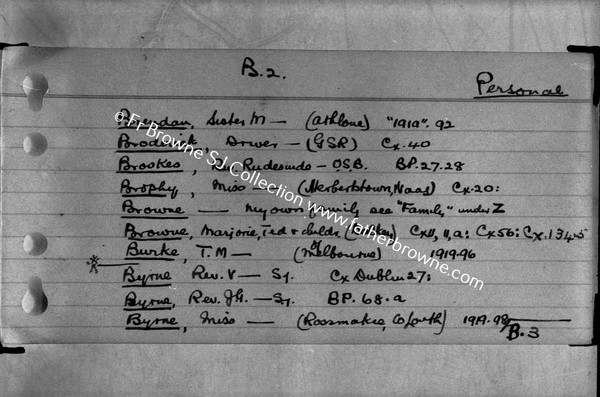 B.2.
Personal
Brendan, Sister M — (Athlone) "1919". 92
Broderick, Driver — (GSR) Cx. 40
Brookes, D. Rudesinde — O.S.B. BP. 27.28
Brophy, Miss — (Herbertstown, Naas) Cx 20:
Browne — my own family see "Family," under Z
Browne, Marjorie, Ted + childr. Cx 11, 11,a: Cx 56: Cx. 134-5
Burke, T.M — (Melbourne) 1919.96
Byrne Rev. V — Sj. Cx Dublin 27:
Byrne, Rev. JG. — Sj. BP. 68.a
Byrne, Miss — (Roosmakea, Co Louth) 1919.98
B.3
© Fr Browne SJ Collection www.fatherbrowne.com